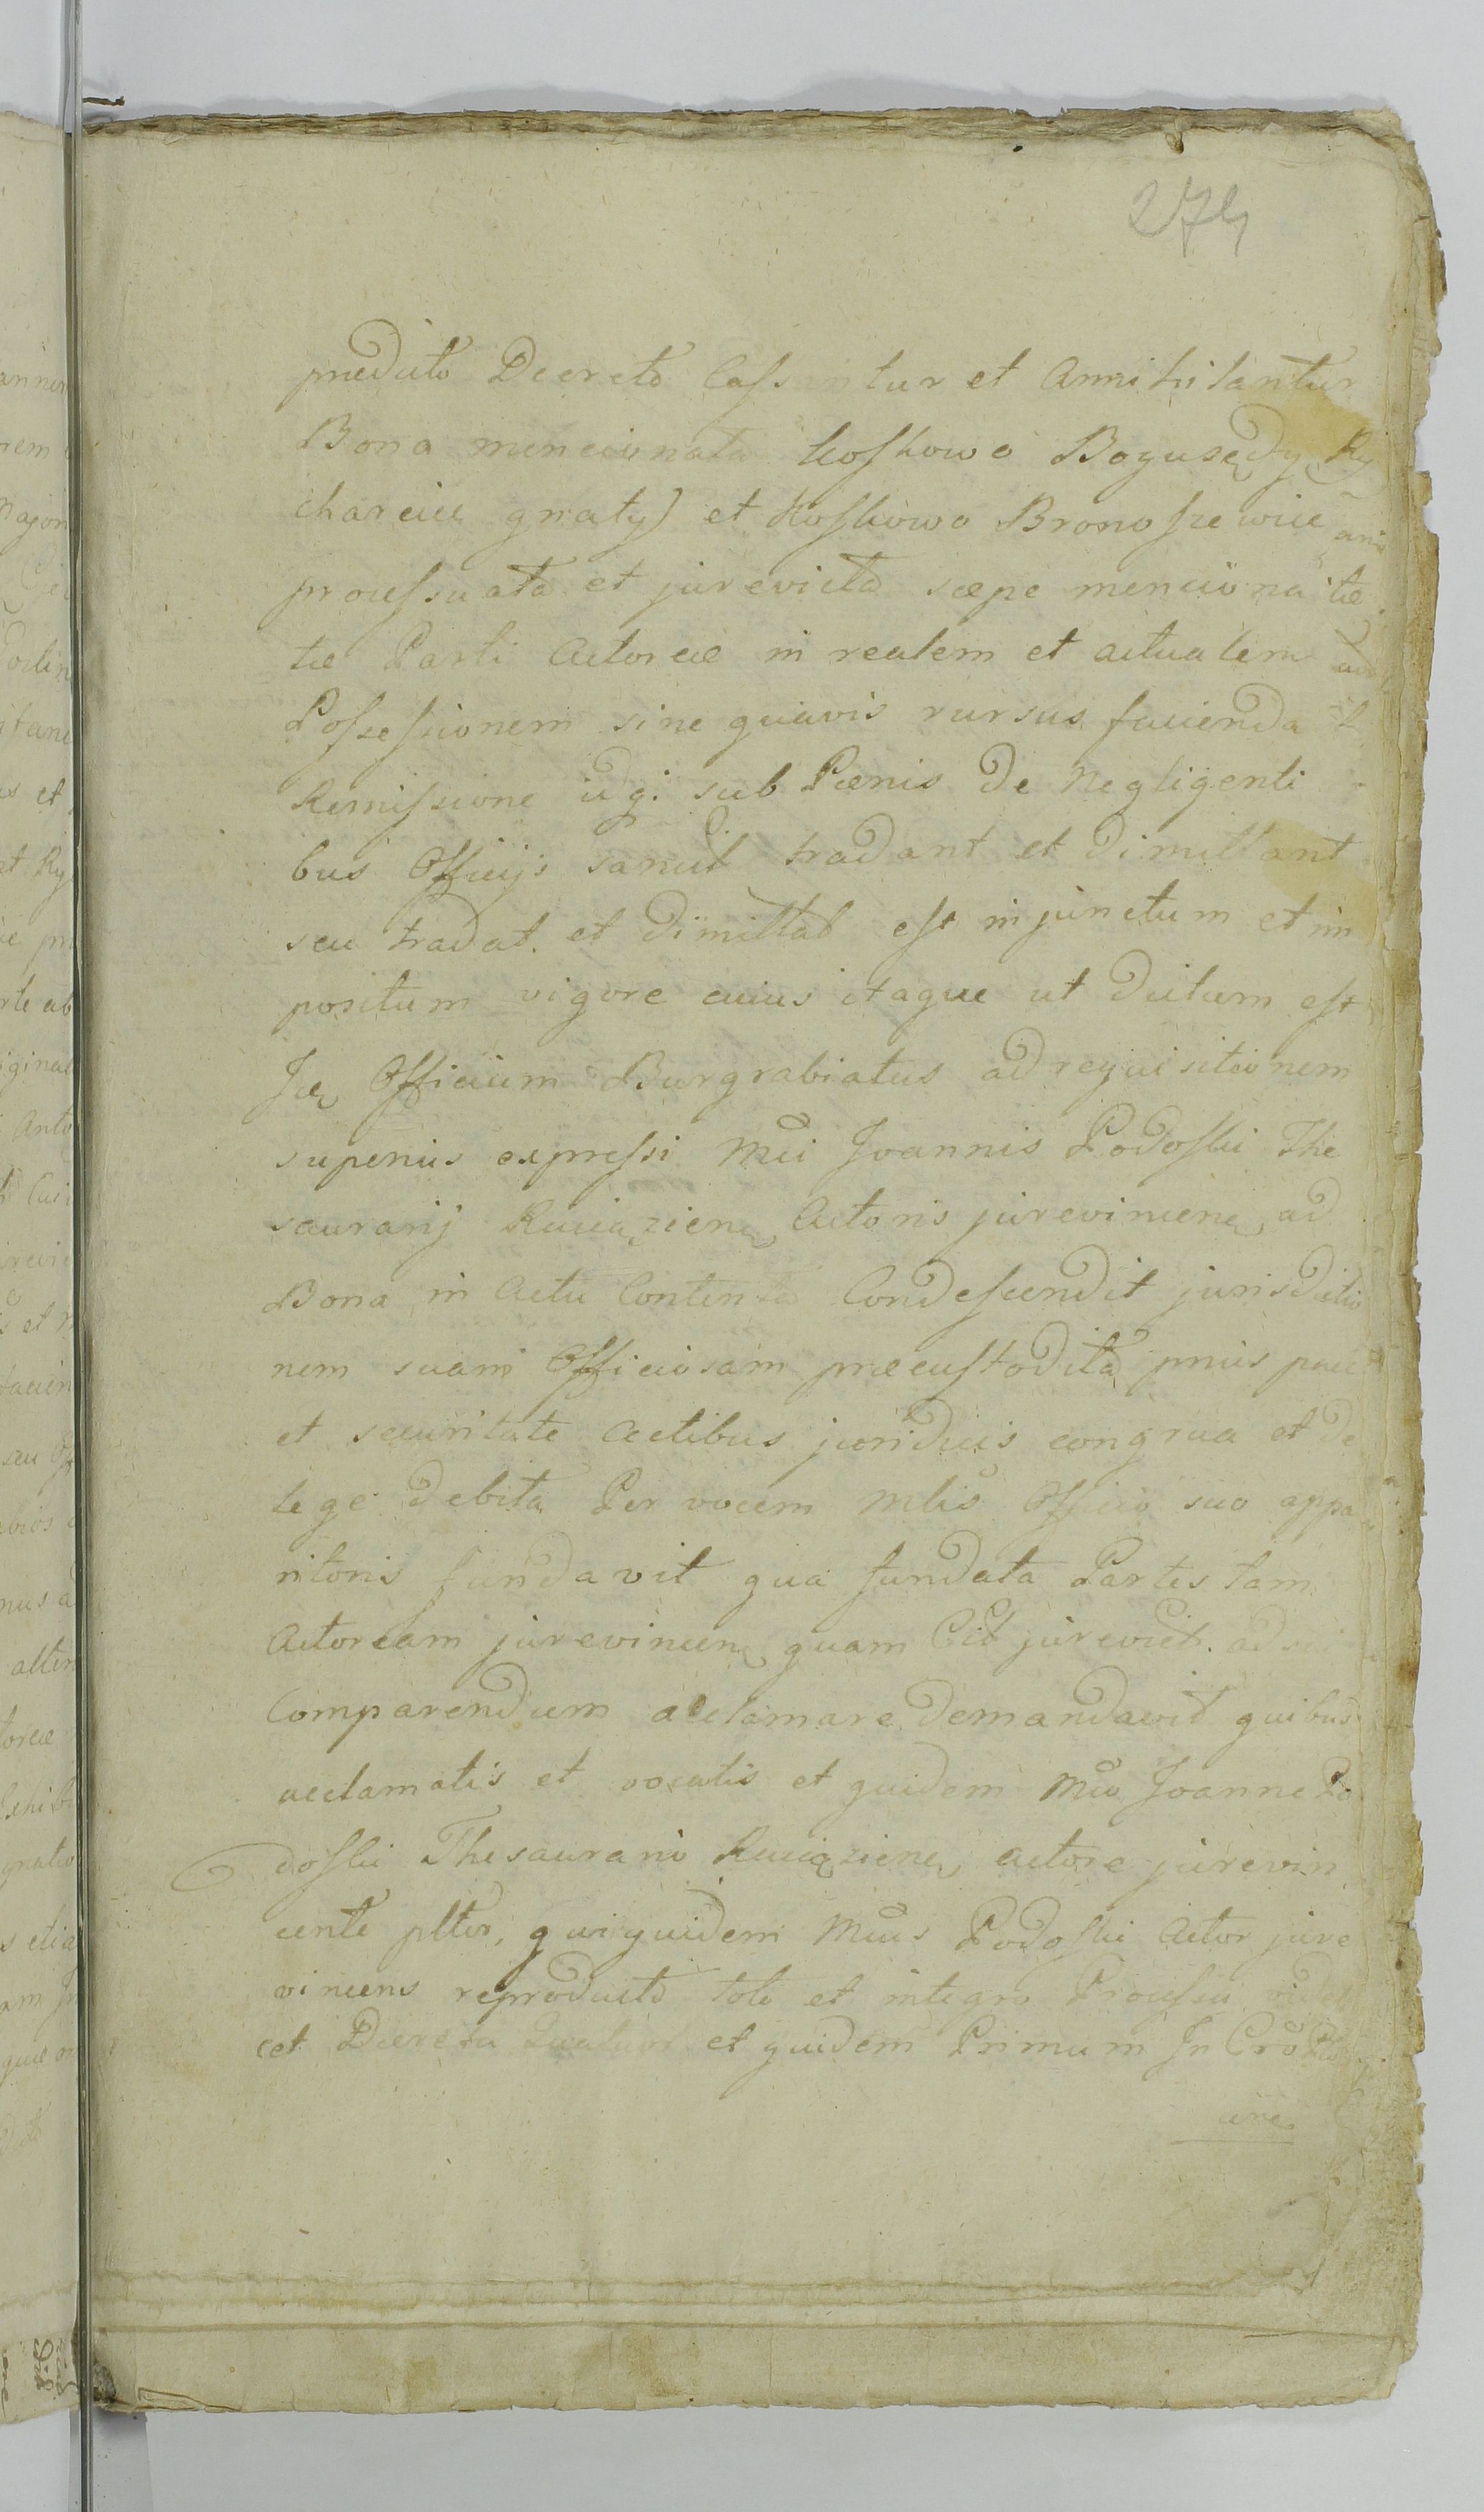 274
prædicto Decreto Cassantur et Annihilantur
Bona mencionata Koskowo Bogusędy, Ry
charcice gnaty) et Koskowo Bronoszewice
processuata et jurevicta sæpe menciona
tæ Parti Actoreæ in realem et actualem
Possessionem sine quavis rursus facienda
Remissione idq; sub Pænis de Negligenti
bus Officijs sancit tradant et dimittant
seu tradat et dimittat est injunctum et im
positum vigore cuius itaque ut dictum est
Officium Burgrabiatus ad requisitionem
superius expressi Mci Joannis Podoski The
saurarij Ruciązienę Actoris jurevincenę ad
Bona in Actu Contenta Condescendit jurisdictio
nem suam Officiosam præcustodita prius pace
et securitate Actibus juridicis congrua et de
lege debita Per vocem Mlis Officio suo appa
ritoris fundavit qua fundata Partes tam
Actoream jurevincenę quam Cit jurevict. ad
Comparendum acclamare demandavit quibus
acclamatis et vocatis et quidem Mco Joanne Po
doski Thesaurario Ruciązienę actore jurevin
cente pltter, qui quidem Mcus Podoski Actor jure
vincens reproducto toto et integro Processu videl
cet Decreta et quidem Primum In